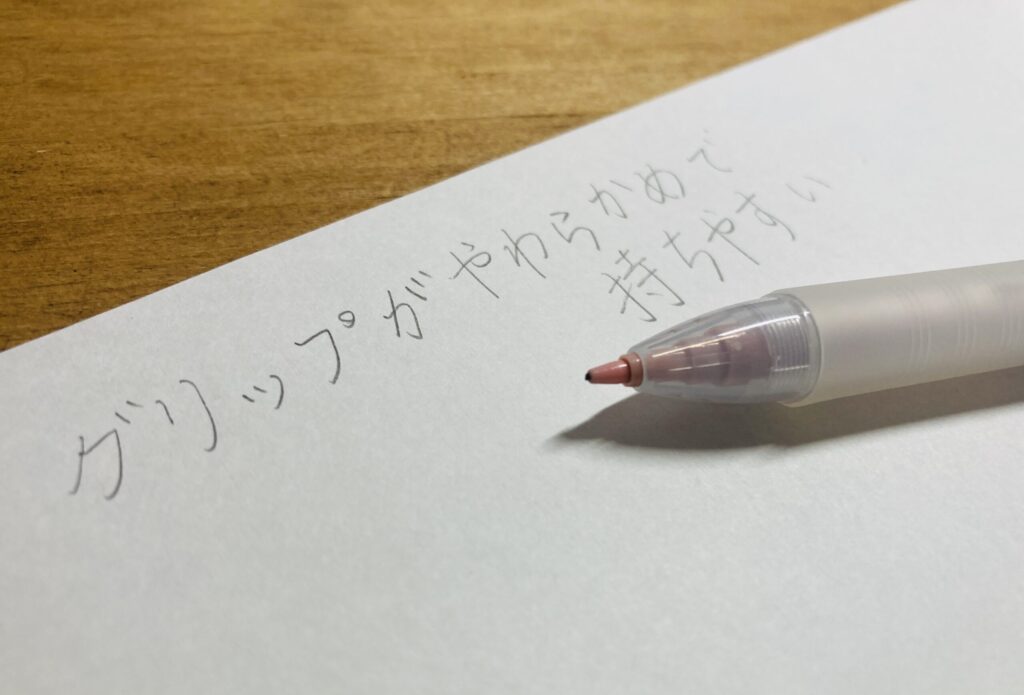 グリップがやわらかめで
持ちやすい